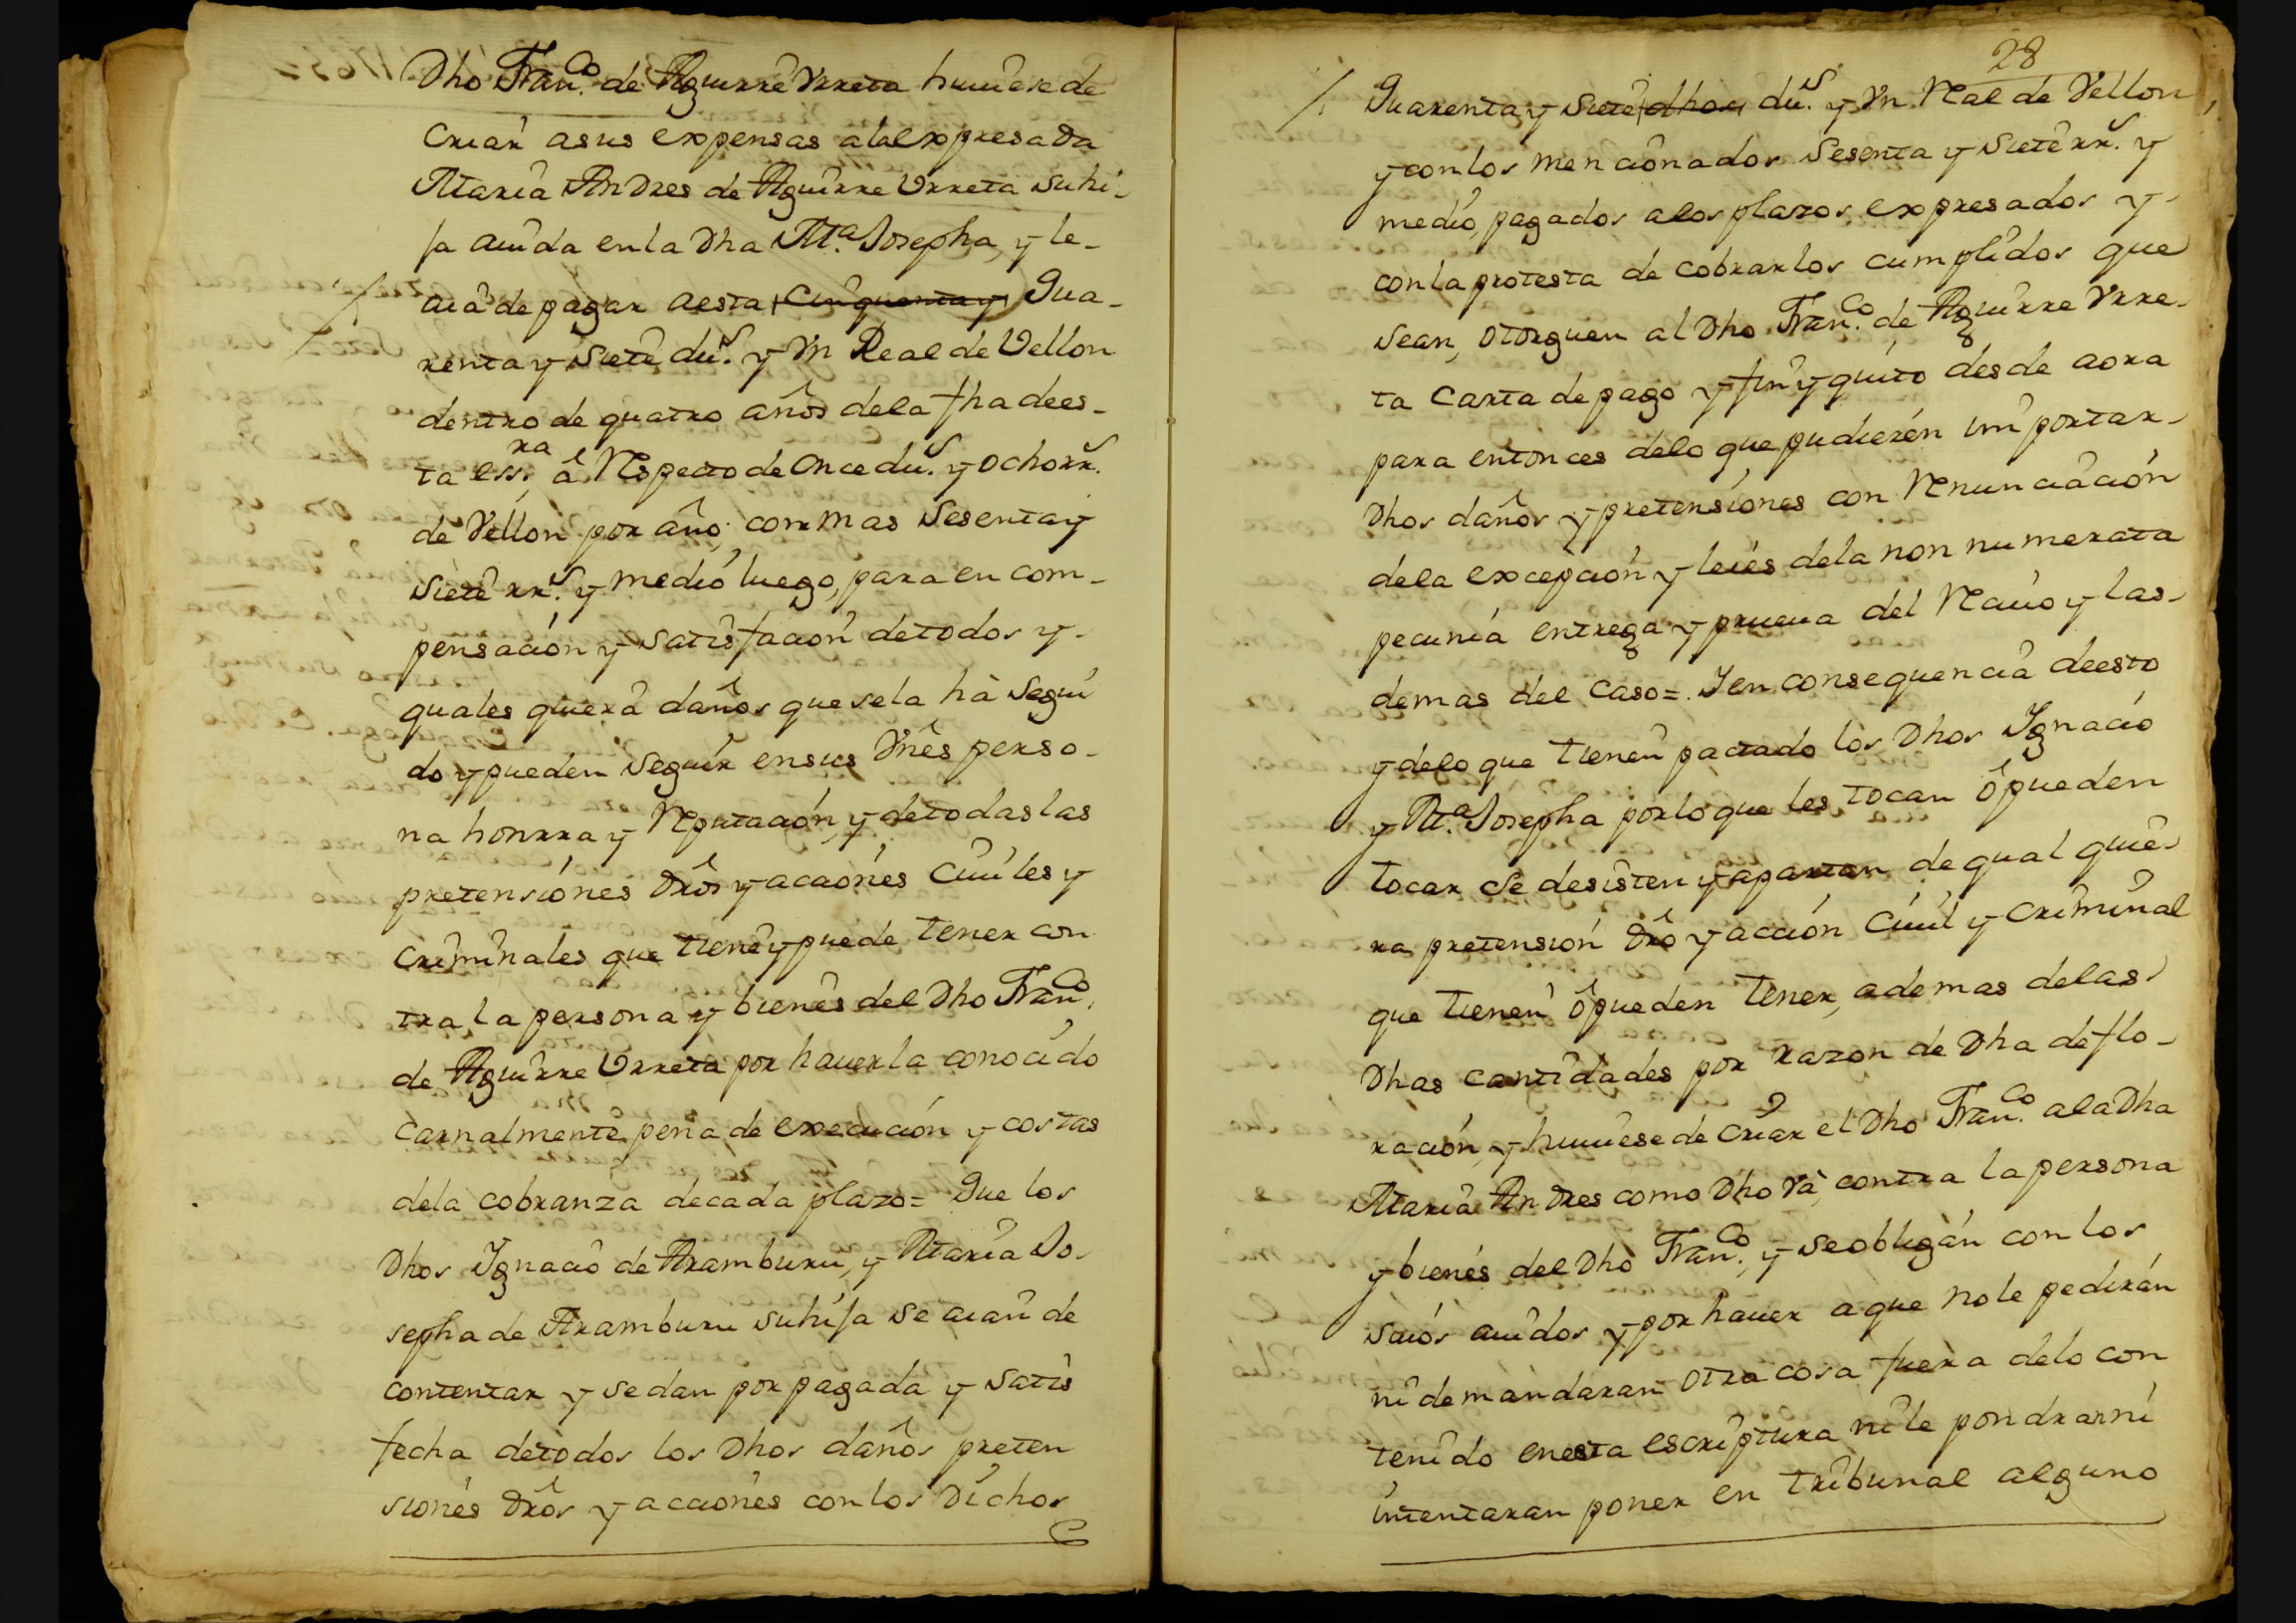 Dho Fran.co de Aguirre Vrreta huuiese de
criar asus expensas alaexpresada
Maria Andres de Aguirre Vrreta suhi-
ja auida enla Dha M.a Josepha, y le-
aiâ de pagar aesta cinquenta y Qua-
renta y siete du.s y Vn Real de Vellon
dentro de quatro años dela fha dees-
ta ess.ra â Respecto de Once du.s y ocho rr.s
de Vellon por año; con mas Sesenta y
siete rr.s y medio luego, para en com-
pensación y satisfacion detodos y-
quales quiera daños que sela hà segui
do y pueden seguir ensus Vnês perso-
na honrra y Reputación, y detodas las
pretensiónes drôs y acciónes Ciuiles y
Criminales que tiene y puede tener con
tra, la persona y bienes del Dho Fran.co
de Aguirre Vrreta por hauerla conocido
Carnalmente pena de execución y costas
dela cobranza decada plazo= Que los
Dhos Ygnacio de Aramburu, y Maria Jo-
sepha de Aramburu suhija se aian de
contentar y sedan por pagada y satis
fecha detodos los Dhos daños preten
siones drôs y acciones conlos Dichos
28
Quarenta y siete dhos du.s y Vn Real de Vellon
y conlos mencionados Sesenta y siete rr.s y
medio, pagados alos plazos expresados y-
conla protesta de cobrarlos cumplidos que
sean, otorguen al Dho Fran.co de Aguirre Vrre-
ta Carta de pago y fin y quito desde aora
para entonces delo que pudieren importar-
Dhos daños y pretensiónes con Renunciación
dela excepción y leies dela non numerata
pecunia entrega y prueua del Reciuo y las-
demas del caso=. Y en consequencia deesto
y delo que tienen pactado los Dhos Ygnacio
y M.a Josepha porlo que les tocan ô pueden
tocar se desisten y apartan de qual quie-
ra pretensión drô y acción Ciuil y Criminal
que tienen ô pueden tener, ademas delas-
Dhas cantidades por razon de Dha deflo-
ración, y huuiese de Criar el Dho Fran.co ala Dha
Maria Andres como Dho và, contra la persona
y bienes del Dho Fran.co, y seobligán con los
suios auidos y por hauer a que nole pedirán
ni demandaran otra cosa fuera delo con
tenido enesta escriptura nile pondran ni
intentaran poner en tribunal alguno